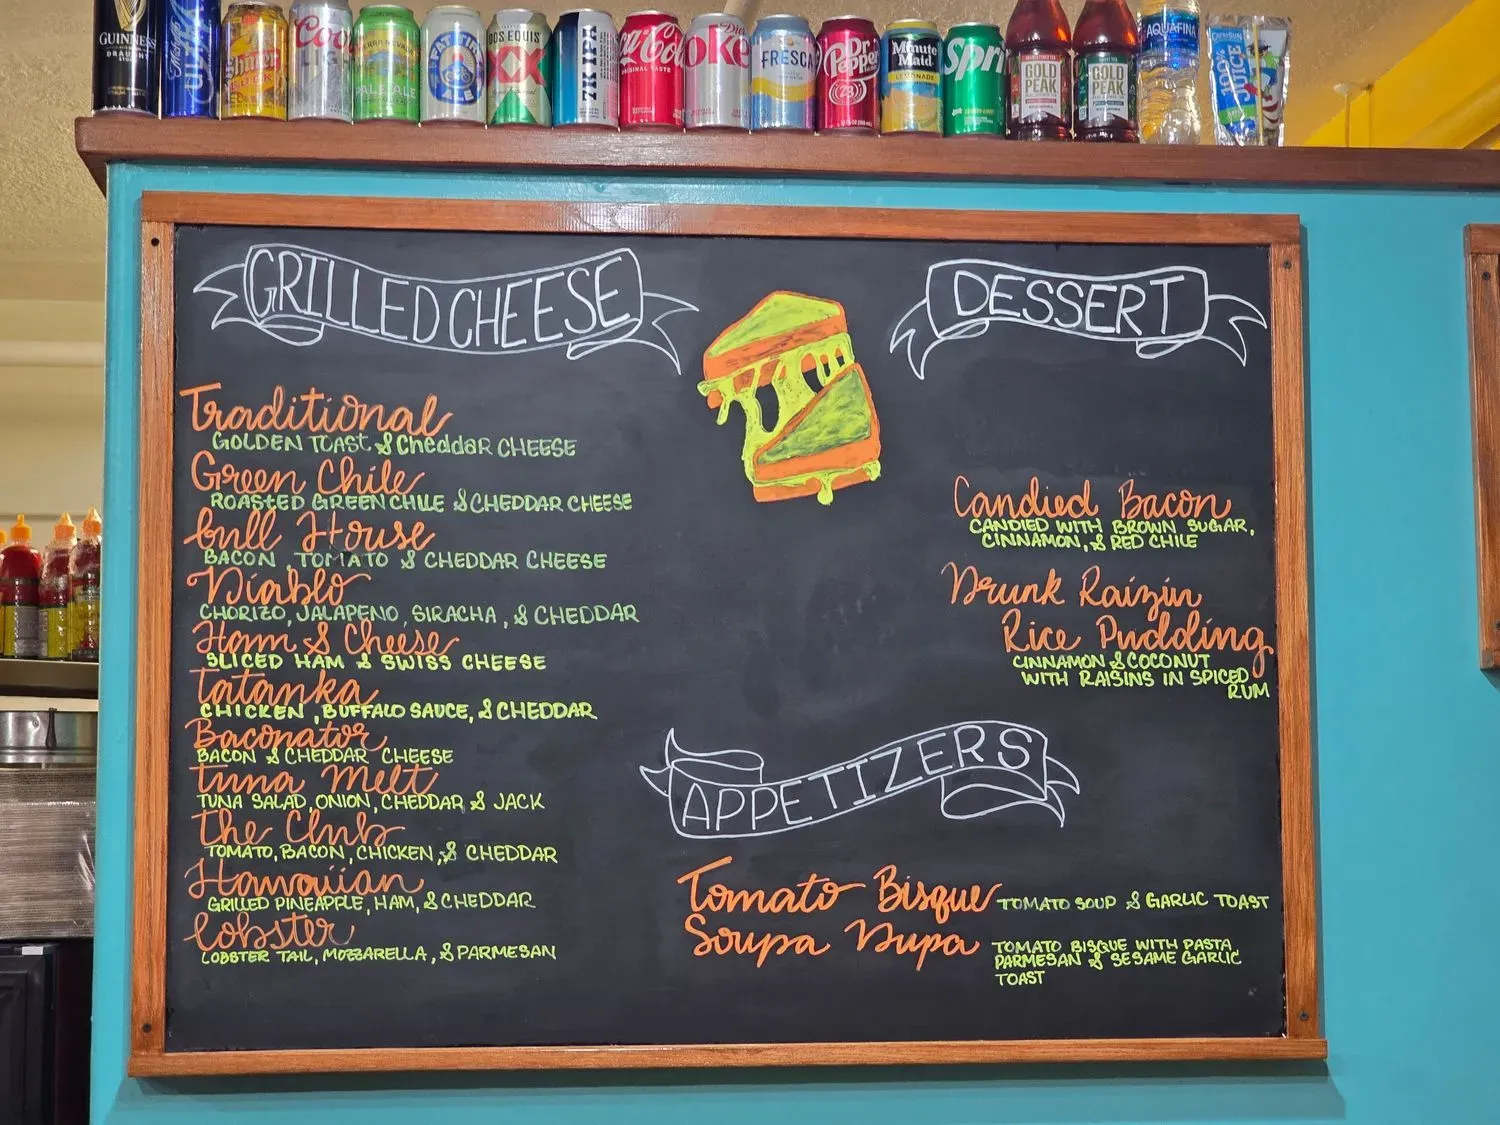 GUINNESS
DRAUGHT
Michelob
ULTRA
Shiner
BOCK
Coors
LIGHT
SIERRA NEVADA
PALE ALE
FAT TIRE
ALE
DOS EQUIS
XX
7K IPA
Coca-Cola
ORIGINAL TASTE
Diet
Coke
FRESCA
Dr Pepper
23
Minute
Maid
LEMONADE
Sprite
GOLD
PEAK
GOLD
PEAK
AQUAFINA
CAPRISUN
100%
JUICE
GRILLED CHEESE
Traditional
GOLDEN TOAST & CHeddaR CHEESE
Green Chile
ROASTED GREEN CHILE & CHEDDAR CHEESE
bull House
BACON, TOMATO & CHEDDAR CHEESE
Diablo
CHORIZO, JALAPENO, SIRACHA, & CHEDDAR
Ham & Cheese
SLICED HAM & SWISS CHEESE
Tatanka
CHICKEN, BUFFALO SAUCE, & CHEDDAR
Baconator
BACON & CHEDDAR CHEESE
tuna Melt
TUNA SALAD, ONION, CHEDDAR & JACK
the Club
TOMATO, BACON, CHICKEN, & CHEDDAR
Hawaiian
GRILLED PINEAPPLE, HAM, & CHEDDAR
lobster
LOBSTER TAIL, MOZZARELLA, & PARMESAN
DESSERT
Candied Bacon
CANDIED WITH BROWN SUGAR,
CINNAMON, & RED CHILE
Drunk Raizin
Rice Pudding
CINNAMON & COCONUT
WITH RAISINS IN SPICED
RUM
APPETIZERS
Tomato Bisque TOMATO SOUP & GARLIC TOAST
Soupa Dupa TOMATO BISQUE WITH PASTA,
PARMESAN & SESAME GARLIC
TOAST